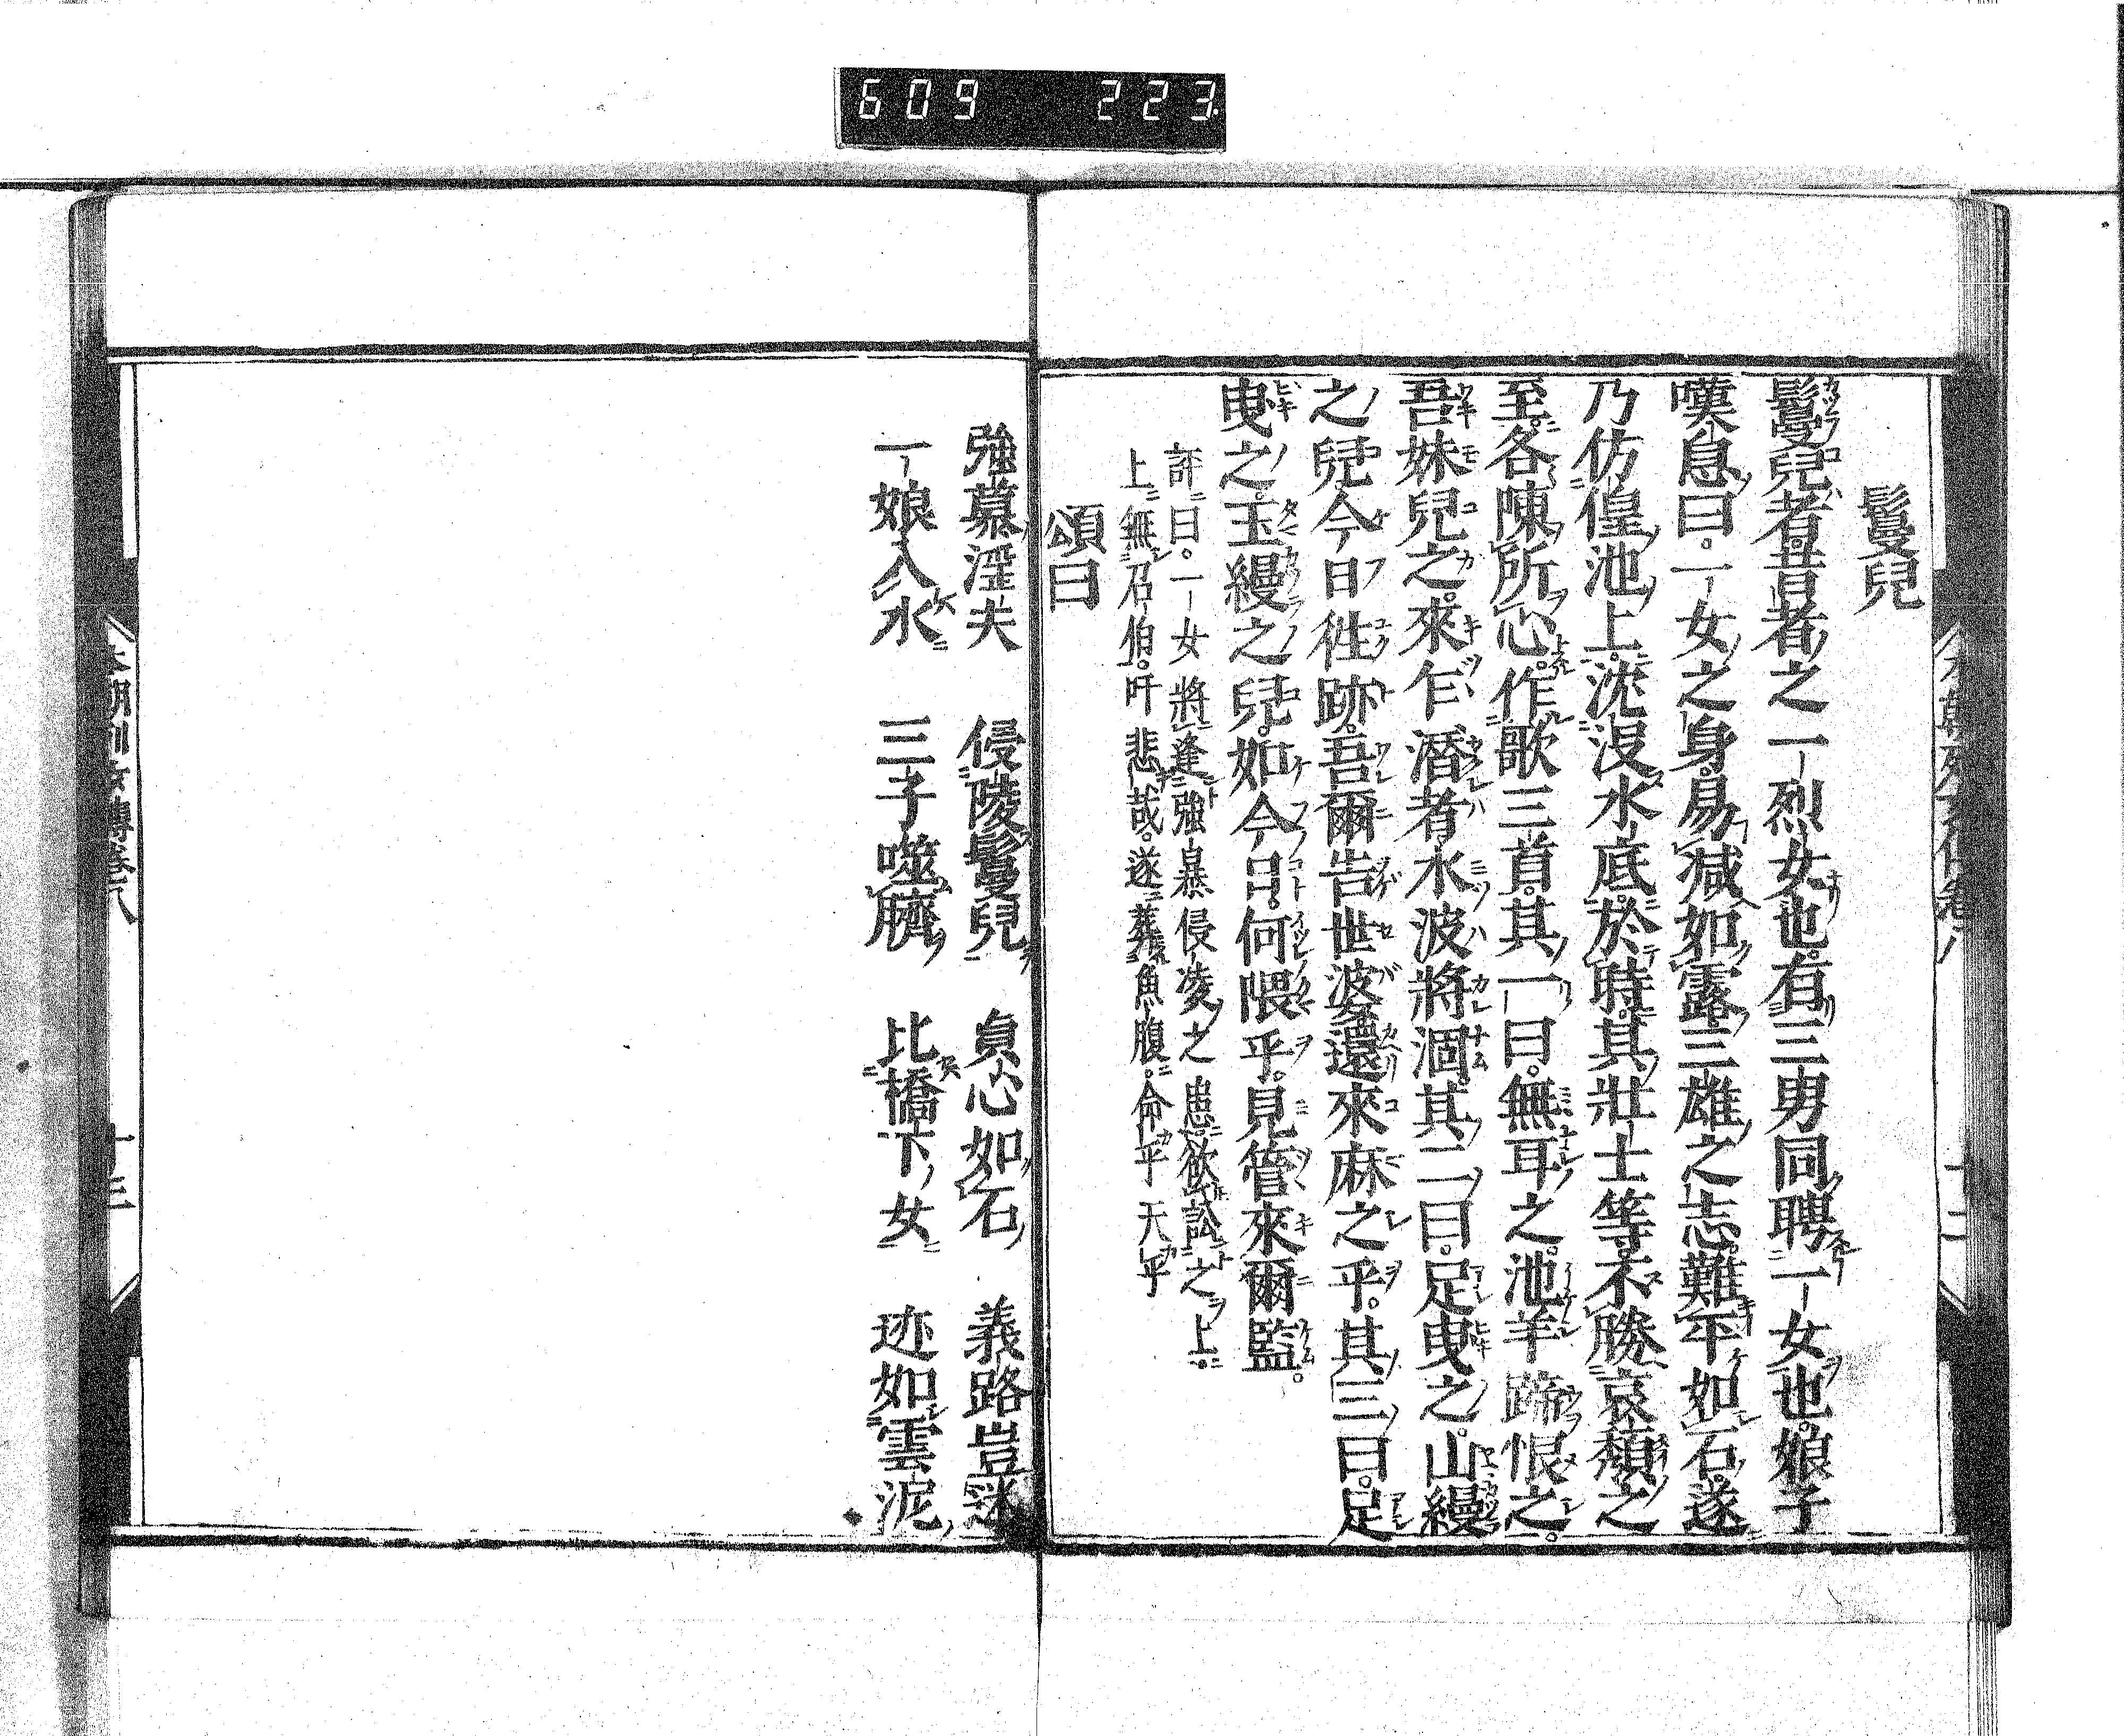 609 223
本朝列女傳卷八 十二
鬘兒
鬘兒者昔者之一烈女也。有三男同聘一女也。娘子
嘆息曰。一女之身易减如露三雄之志難平如石遂
乃仿偟池上。沈沒水底。於時其壯士等不勝哀頽之
至。各陳所心。作歌三首。其一曰。無耳之。池羊蹄恨之。
吾妹兒之。來乍潛者。水波將涸。其二曰。足曳之。山縵
之兒。今日徃跡。吾爾告世婆。還來麻之乎。其三曰。足
曳之。玉縵之兒。如今日。何隈乎。見管來爾監。
評曰。一女將逢強暴侵凌之患欲訟之上。
上無召伯。吁悲哉。遂葬魚腹。命乎天乎
頌曰
強慕淫夫 侵陵鬘兒 貞心如石 義路豈迷
一娘入水 三子噬臍 比橋下女 迹如雲泥
本朝列女傳卷八 十三